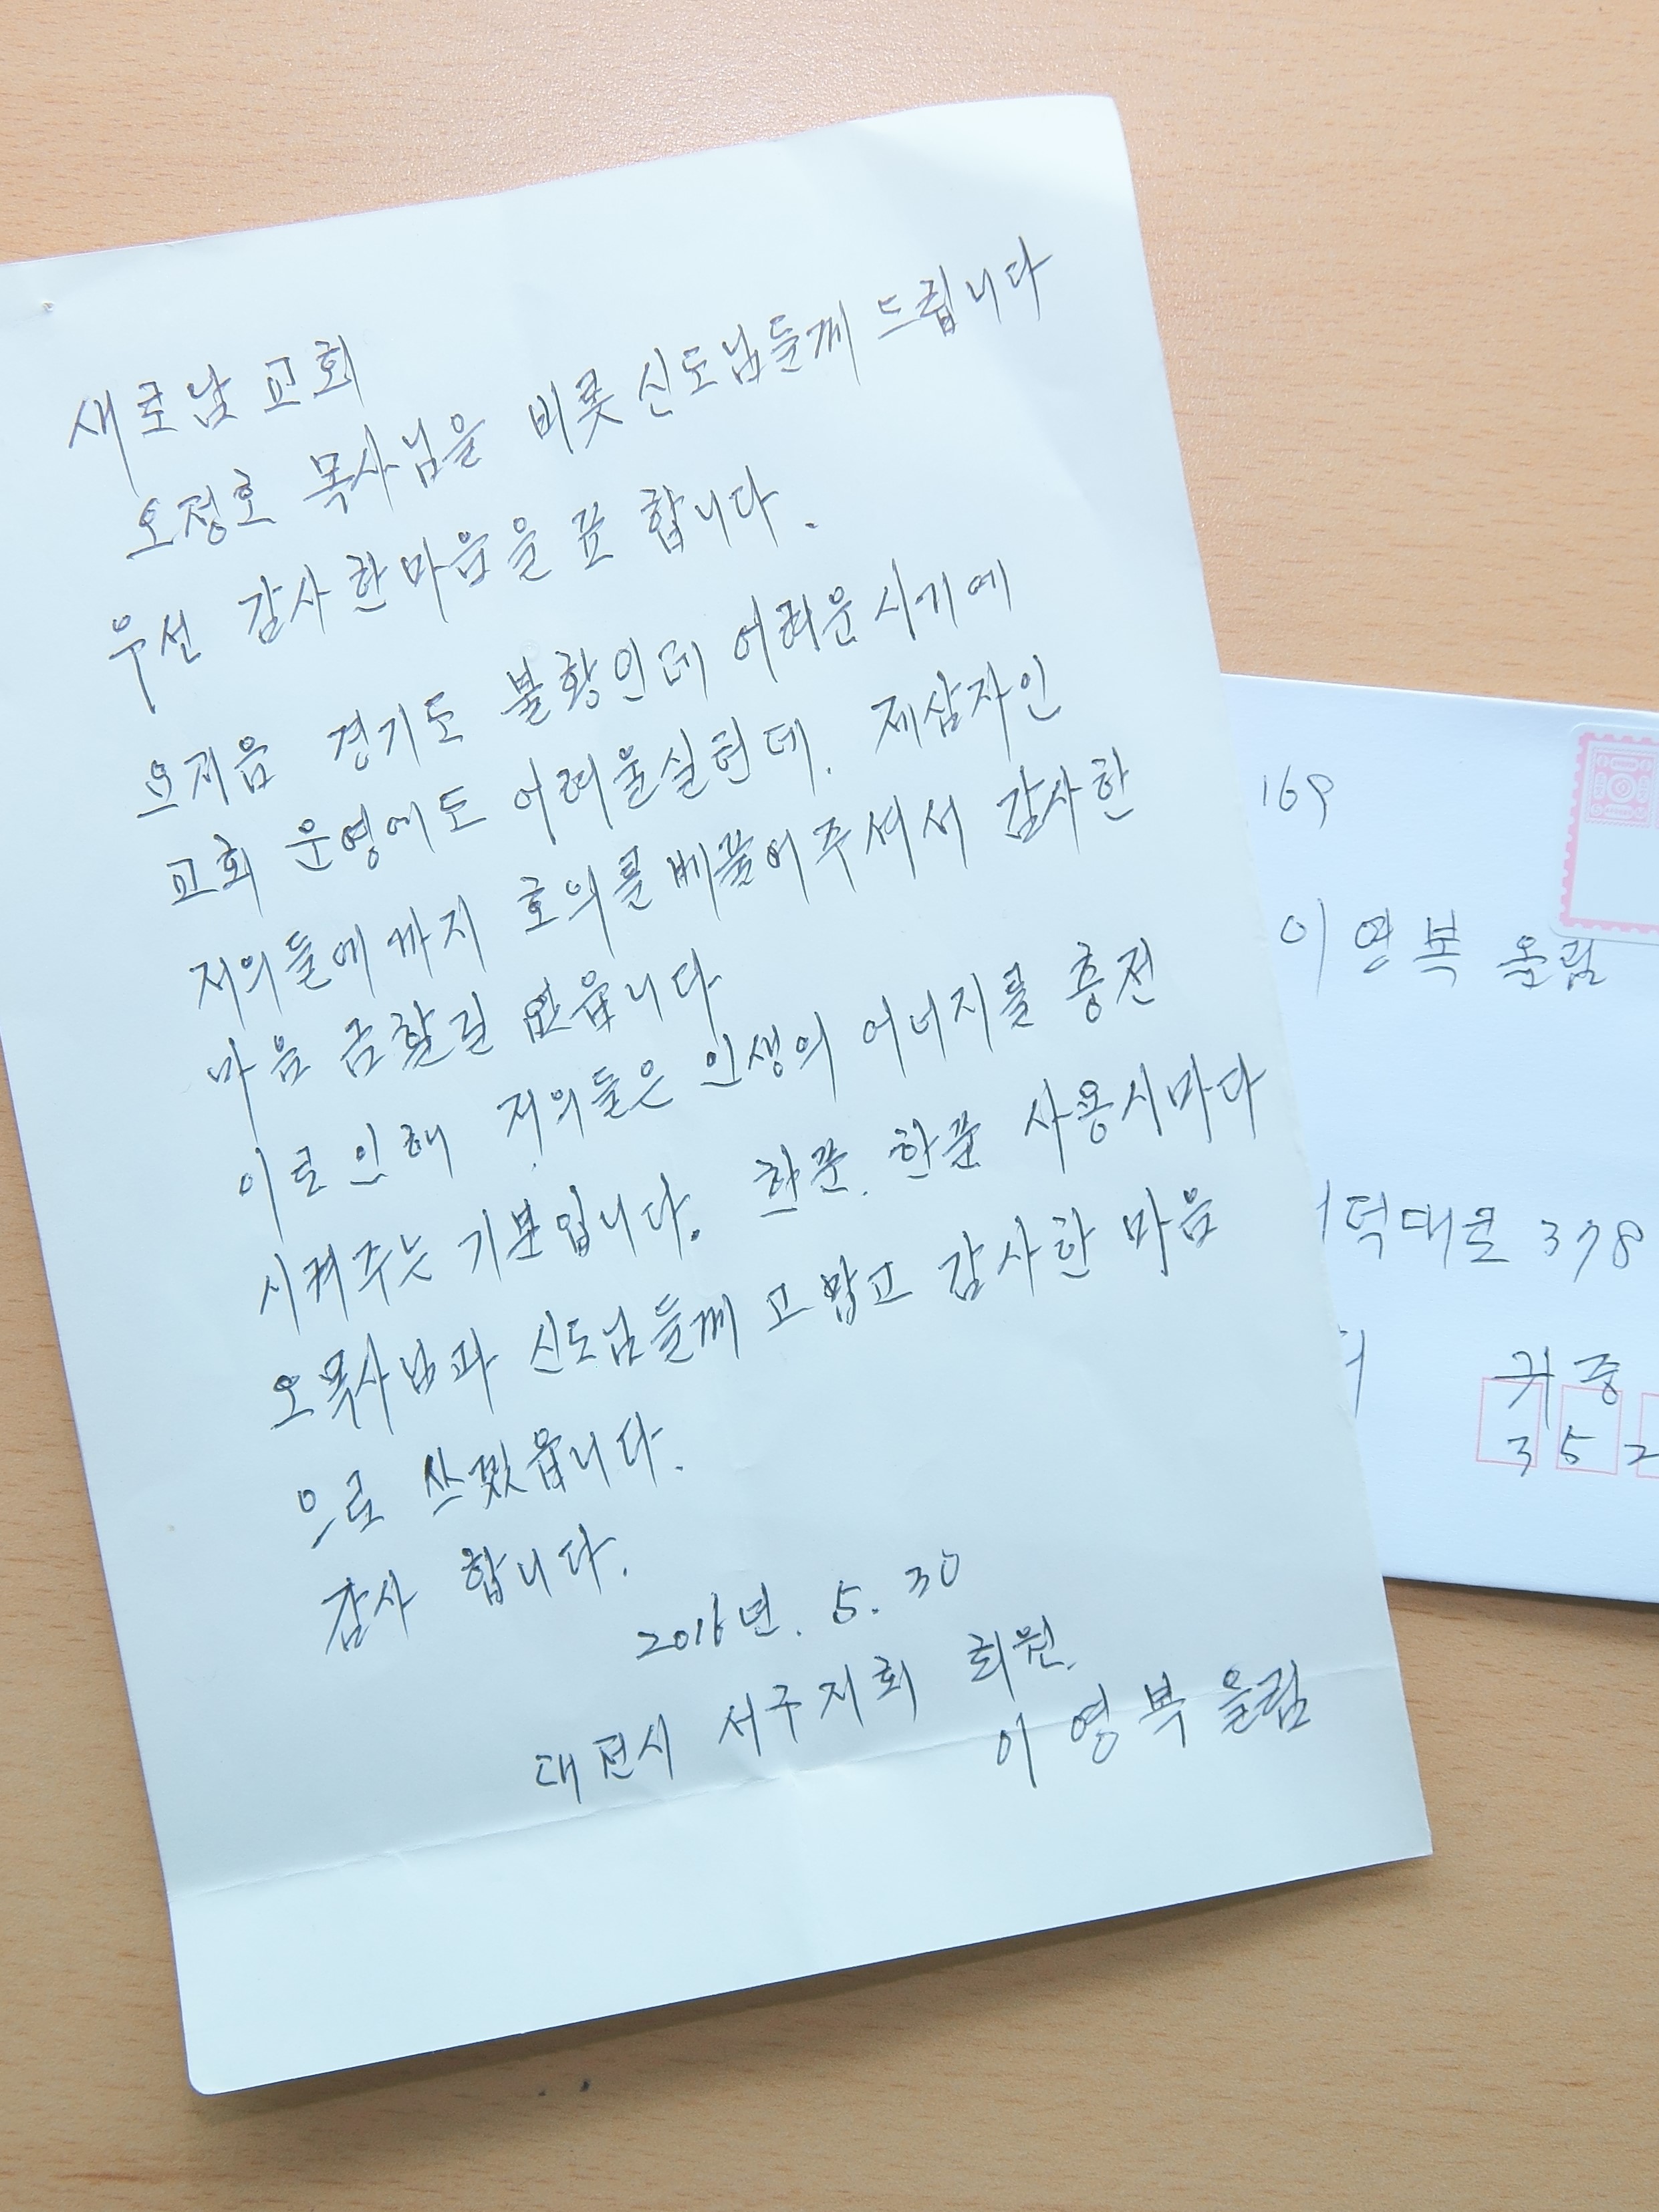 새로남 교회
오정호 목사님을 비롯 신도님들께 드립니다
우선 감사한마음을 표 합니다.
요지음 경기도 불황인데 어려운시기에
교회 운영에도 어려울실턴데. 제삼자인
저의들에까지 호의를베풀어주셔서 감사한
마음 금할길 없읍니다
이로인해 저의들은 인생의 에너지를 충전
시켜주는 기분입니다. 한푼. 한푼 사용시마다
오목사님과 신도님들께 고맙고 감사한 마음
으로 쓰겠읍니다.
감사 합니다.
2016년. 5. 30
대전시 서구지회 회원.
이영복 올림
169
이영복 올림
덕대로 378
귀중
3 5 2